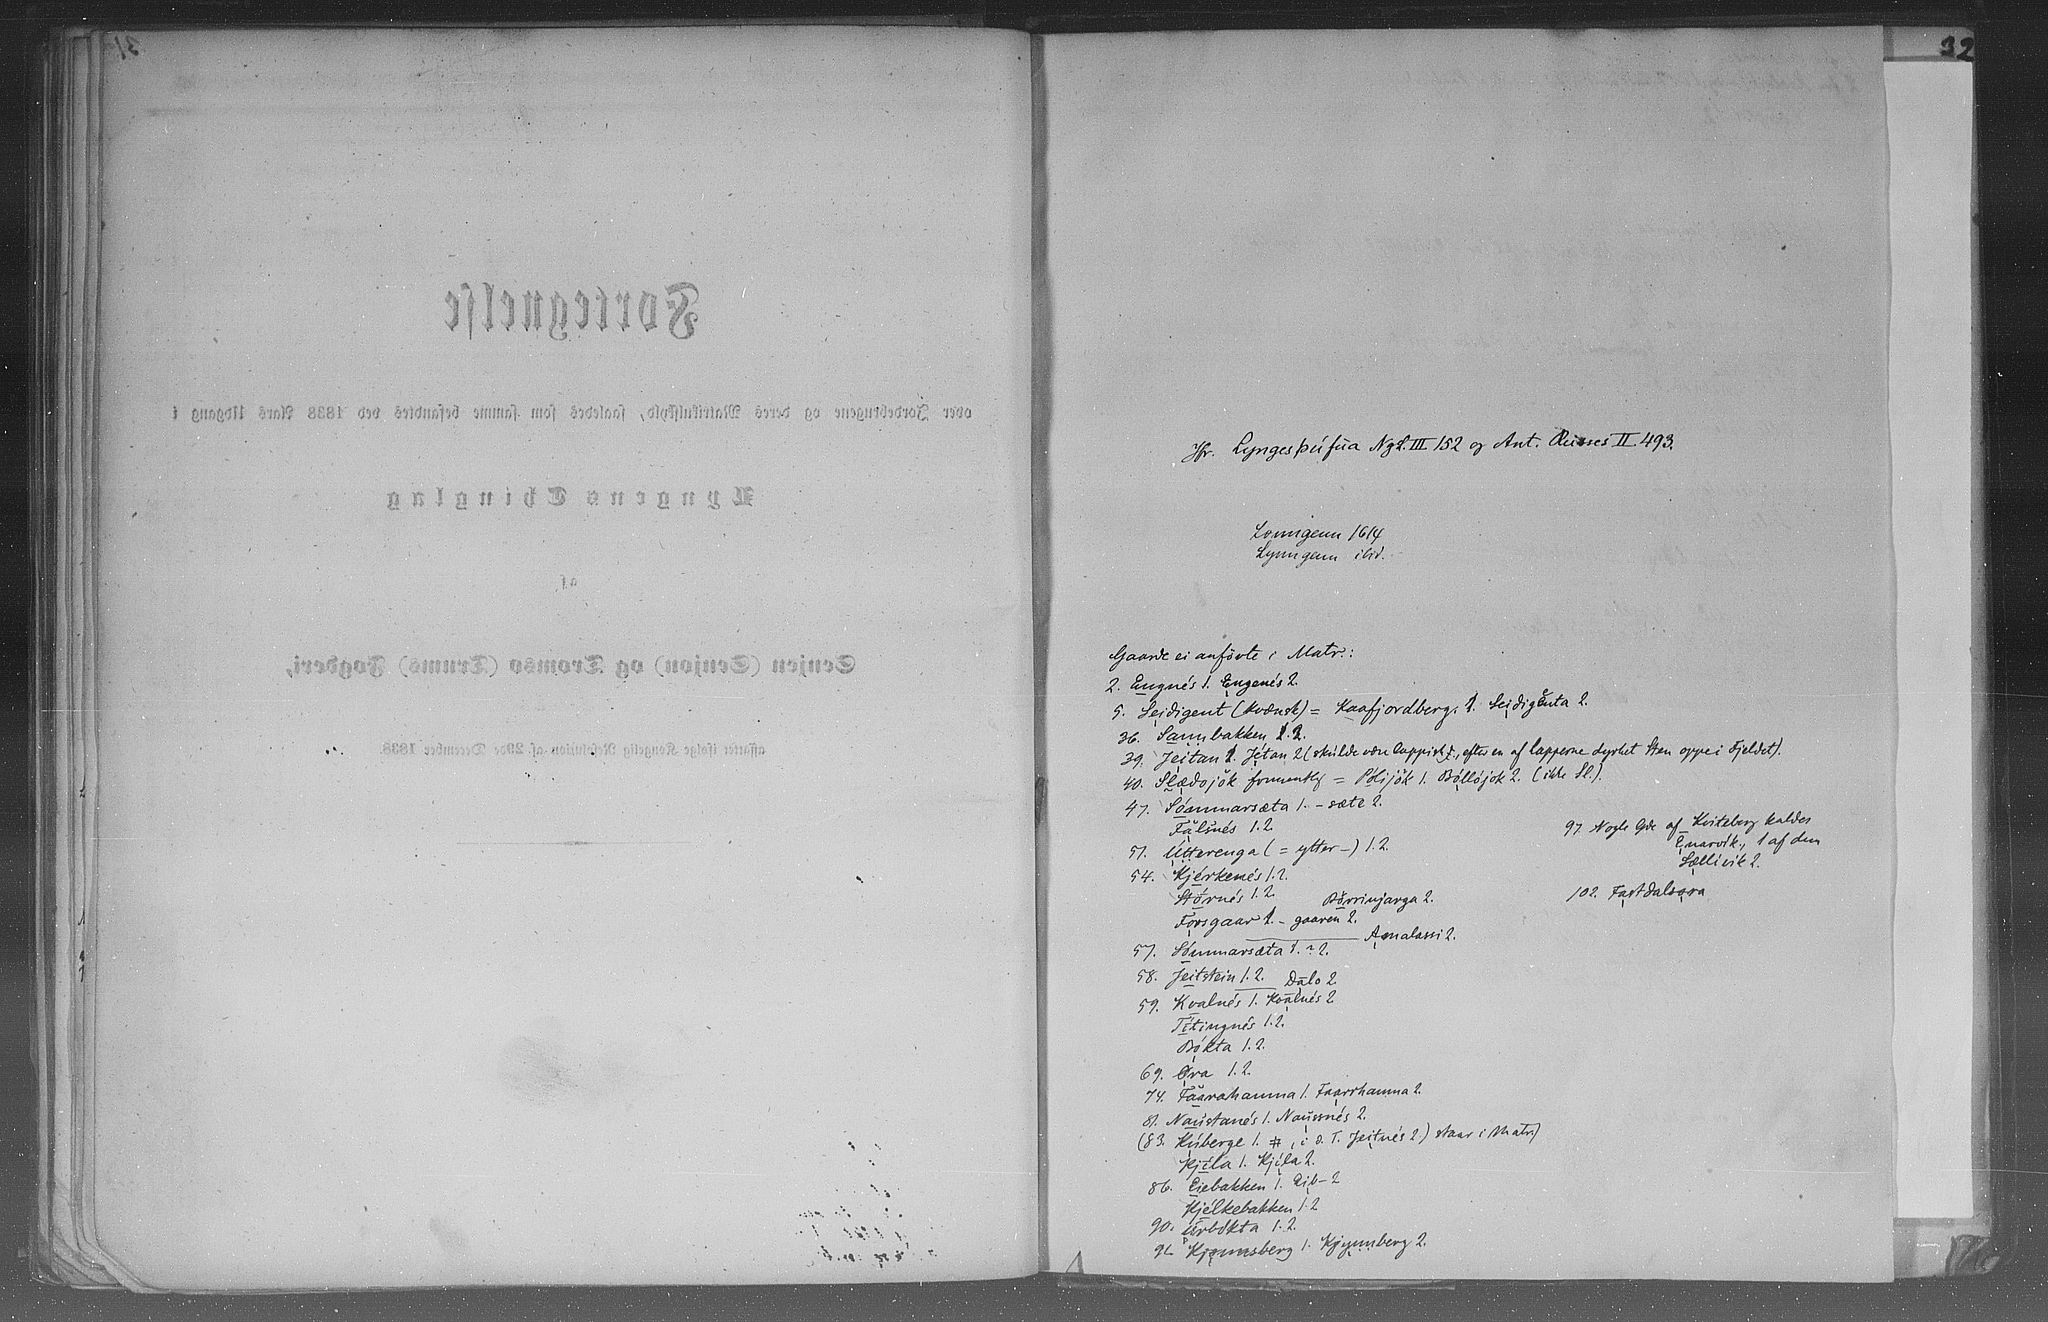 31
Fortegnelse
over Jordebrugene og deres Matrikulskyld, saaledes som samme befandtes ved 1838 Aars Udgang i
Lyngens Thinglag
af
Senjen (Senjon) og Tromsø (Trums) Fogderi,
affattet ifølge Kongelig Resolution af 29de December 1838.
32
Jfr. Lyngesþúfua NgL. III 152 og Ant. Russes II. 493.
Lonngenn 1614
Lynngenn ibid.
Gaarde ei anførte i Matr.:
2. Engnés 1. Engenés 2.
5. Seidigent (kvænsk) = Kaafjordberg. 1. Seidigenta 2.
36. Sannbakken 1.2.
39. Jeitan 1. Jetan 2 (skulde være lappisk, efter en af lapperne dyrket Sten oppe i Fjeldet).
40. Slædojok formentlig = Pölijök 1. Böllöjok 2. (ikke Sl.).
47. Sömmarsæta 1. – sæte 2.
Fālsnés 1.2.
51. Ütterenga (= ytter –) 1.2.
54. Kjérkenés 1.2.
Störnés 1.2. Börrinjarga 2.
Forsgaar 1. – gaaren 2.
Amalassi 2.
57. Sömmarsæta 1. ~ 2.
58. Jeitstein 1.2. Dalo 2
59. Kvalnés 1. Kvālnés 2
Titingnés 1.2.
Bókta 1.2.
69. Øra 1.2.
74. Faarahamna 1. Faarrhamna 2.
81. Naustanés 1. Naussnés 2.
(83. Kúberge 1. #, i d. T. Jeitnés 2) staar i Matr.)
Kjila 1. Kjíla 2.
86. Eiebakken 1. Eib– 2
Kjélkebakken 1.2
90. Urbökta 1.2.
91. Kjomnsberg 1. Kjymnberg 2.
97. Nogle Gde af Kviteberg kaldes
Enarvik, 1 af dem
Sællivik 2.
102. Fastdalsøra